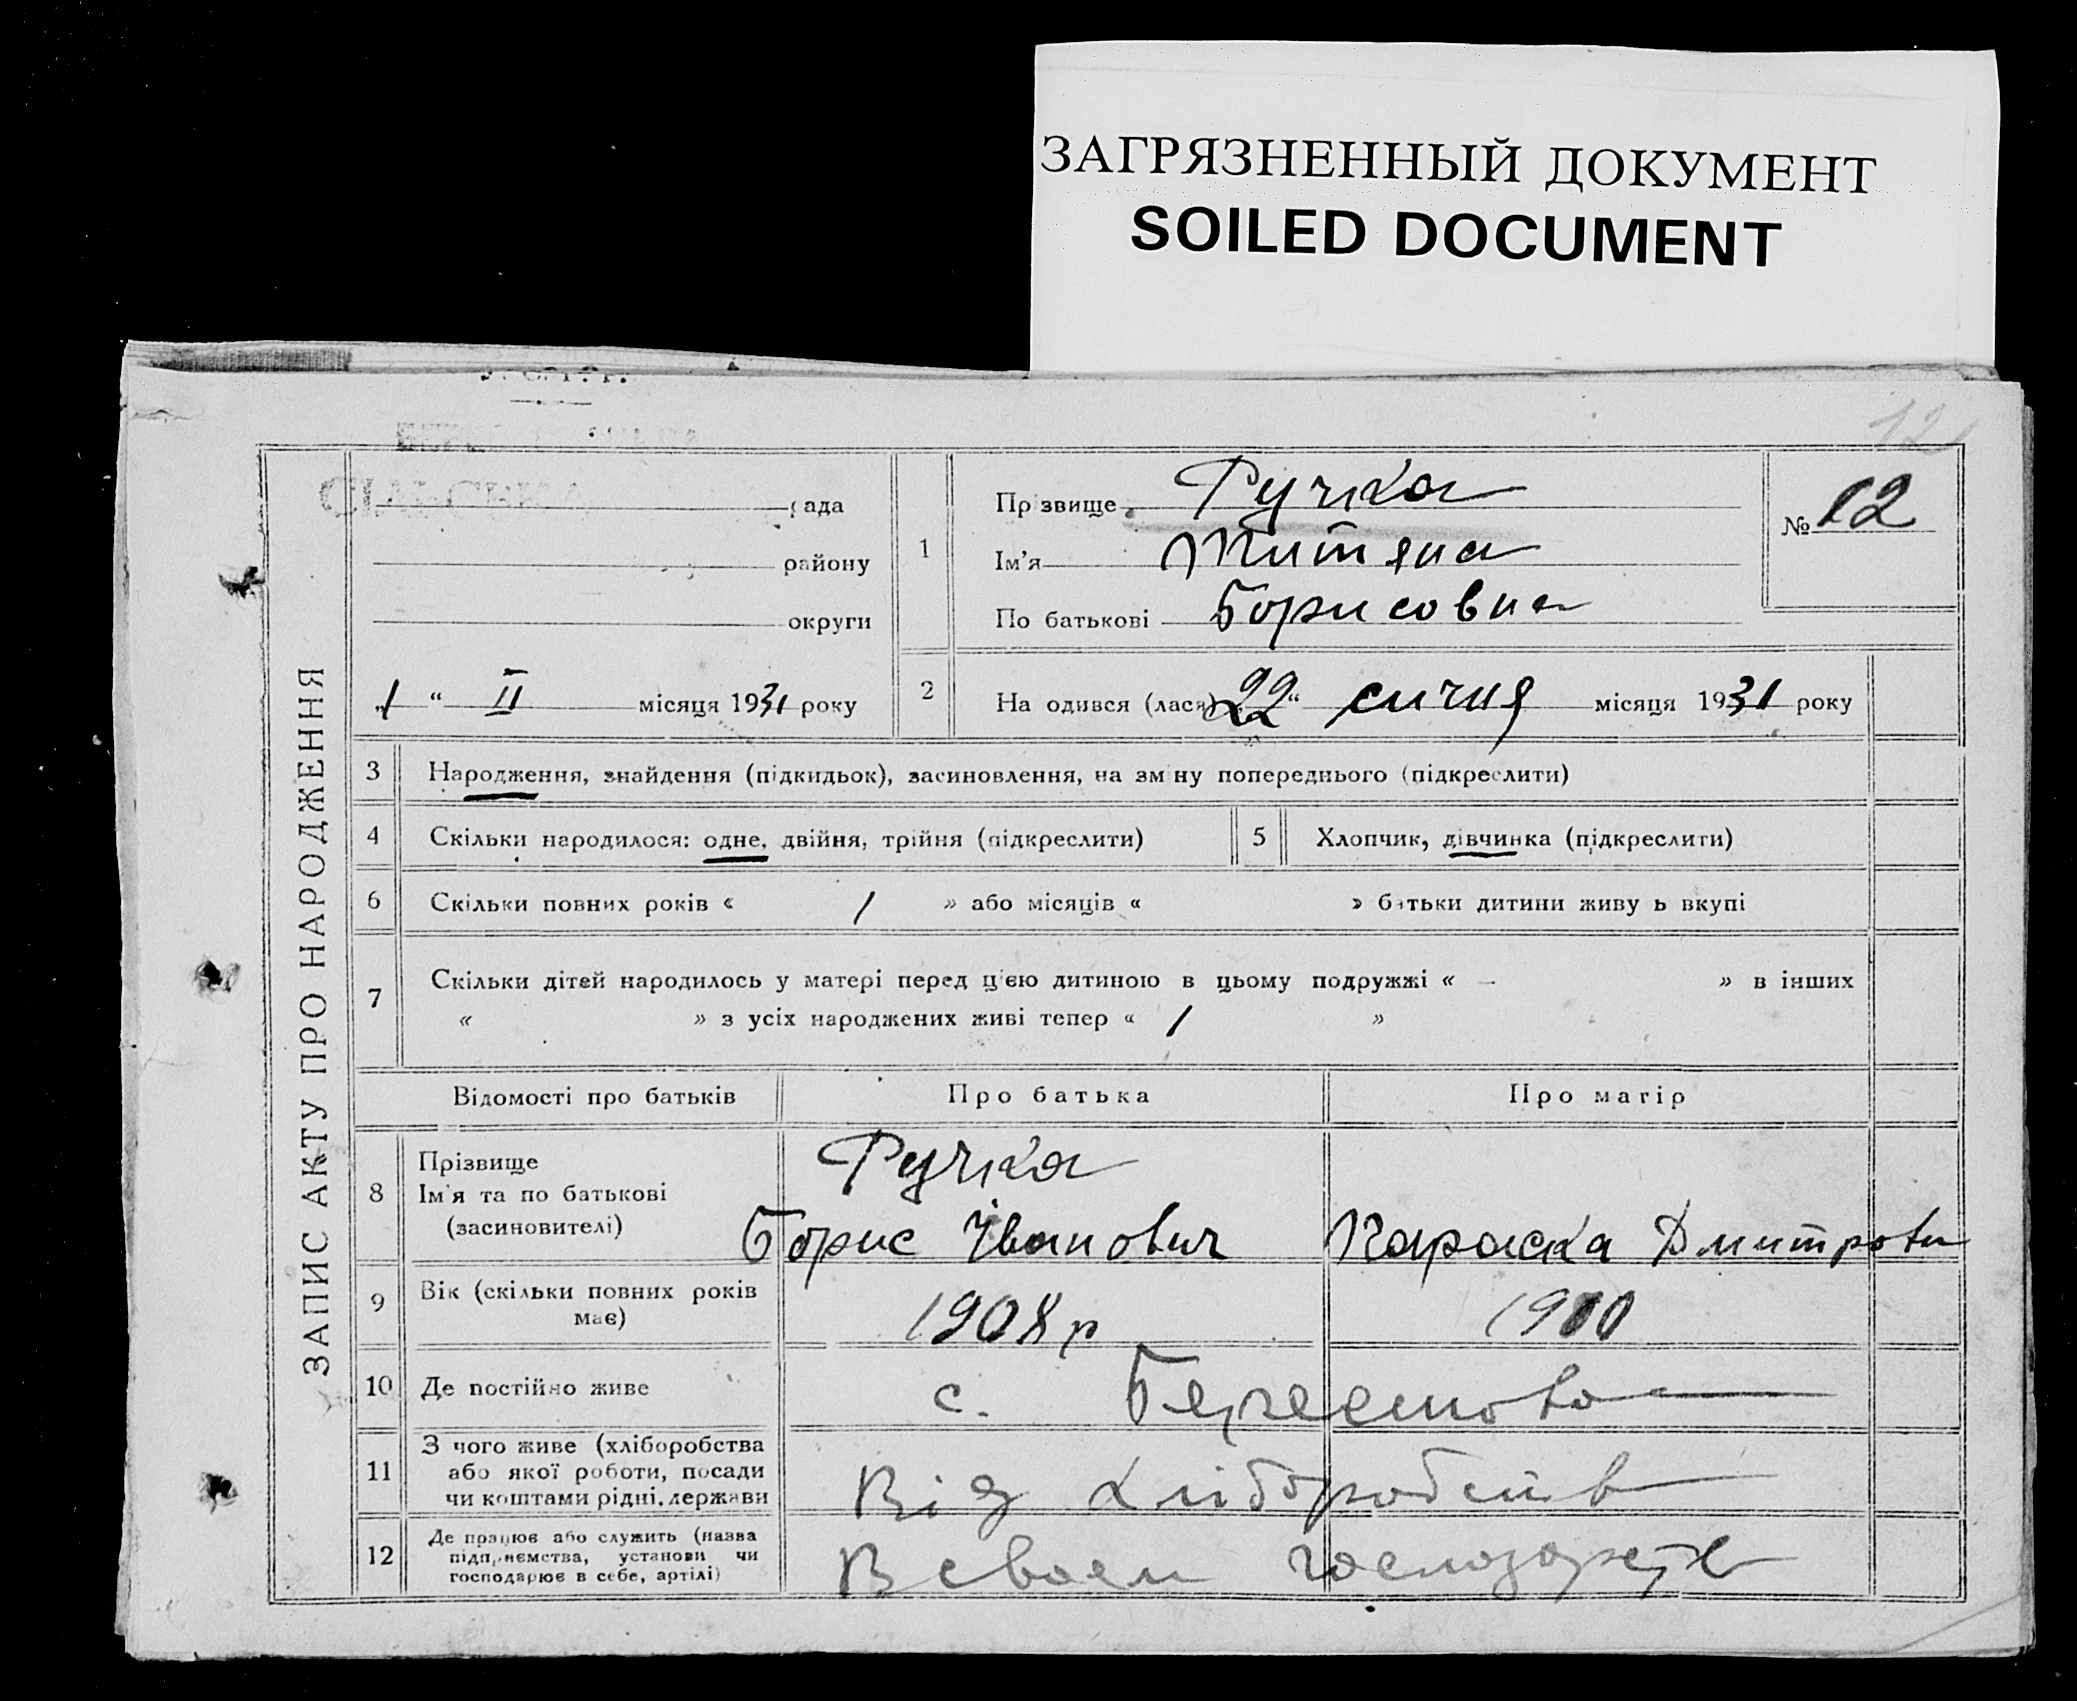 ЗАГРЯЗНЕННЫЙ ДОКУМЕНТ
SOILED DOCUMENT
12
ЗАПИС АКТУ ПРО НАРОДЖЕННЯ
рада
району
округи
„1“ II місяця 1931 року
1
Прізвище Ручка
Ім'я Титяна
По батькові Борисовна
№ 12
2
На одився (лася) „22“ сичня місяця 1931 року
3 Народження, знайдення (підкидьок), засиновлення, на зміну попереднього (підкреслити)
4 Скільки народилося: одне, двійня, трійня (підкреслити)
5 Хлопчик, дівчинка (підкреслити)
6 Скільки повних років « 1 » або місяців « » батьки дитини живу ь вкупі
7 Скільки дітей народилось у матері перед цією дитиною в цьому подружжі « – » в інших
« » з усіх народжених живі тепер « 1 »
Відомості про батьків Про батька Про матір
8 Прізвище
Ім'я та по батькові
(засиновителі)
Ручка
Борис Іванович Параска Дмитровн
9 Вік (скільки повних років
має)
1908 р 1900
10 Де постійно живе с.
11 З чого живе (хліборобства
або якої роботи, посади
чи коштами рідні, держави
Від хліборобств
12 Де працює або служить (назва
підприємства, установи чи
господарює в себе, артілі)
В своем господарств